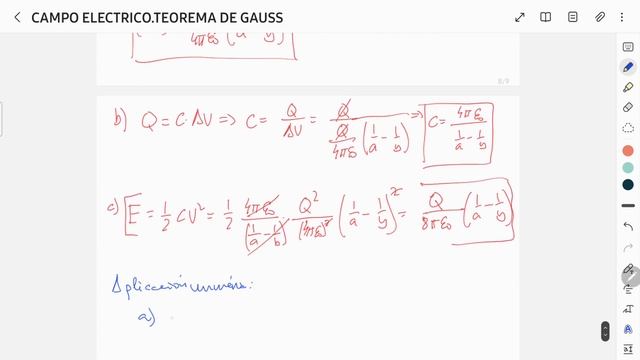 CAMPO ELECTRICO.TEOREMA DE GAUSS
4πε₀ (a y)
8/9
b) Q = C·ΔV => C = Q/ΔV = Q/(Q/4πε₀ (1/a - 1/y)) => C = 4πε₀/(1/a - 1/y)
c) E = 1/2 CV² = 1/2 4πε₀/(1/a - 1/b) · Q²/(4πε₀)² (1/a - 1/y)² = Q/8πε₀ (1/a - 1/y)
Aplicación numérica:
a)